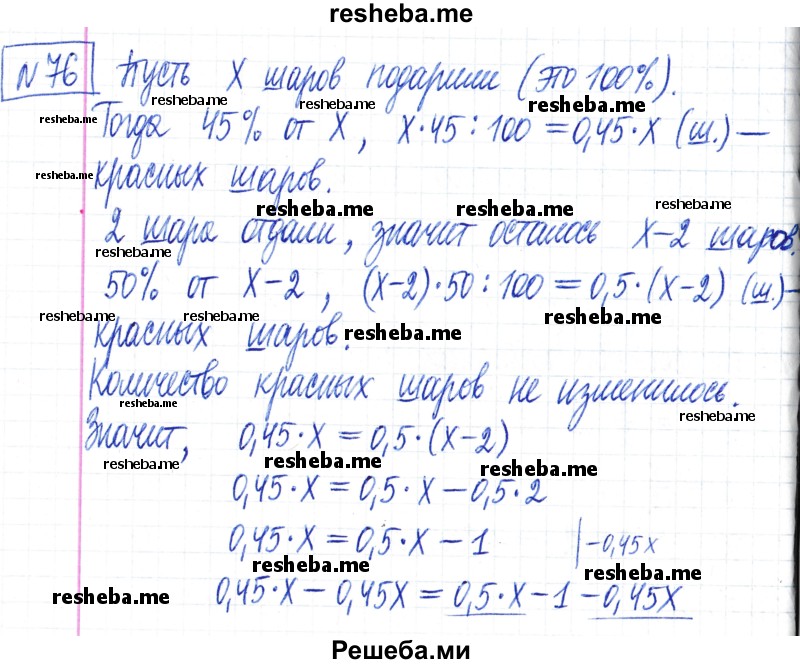 resheba.me
№ 76 Пусть X шаров подарили (это 100%).
resheba.me resheba.me resheba.me
resheba.me Тогда 45% от X, X·45:100=0,45·X (ш.)—
resheba.me красных шаров.
resheba.me resheba.me resheba.me
2 шара отдали, значит осталось X-2 шаров.
resheba.me
50% от X-2, (X-2)·50:100=0,5·(X-2) (ш.)-
resheba.me resheba.me resheba.me
красных шаров.
Количество красных шаров не изменилось.
resheba.me resheba.me
Значит, 0,45·X=0,5·(X-2)
resheba.me resheba.me resheba.me
0,45·X=0,5·X-0,5·2
0,45·X=0,5·X-1 |-0,45X
resheba.me resheba.me
resheba.me 0,45·X-0,45X=0,5·X-1-0,45X
Решеба.ми